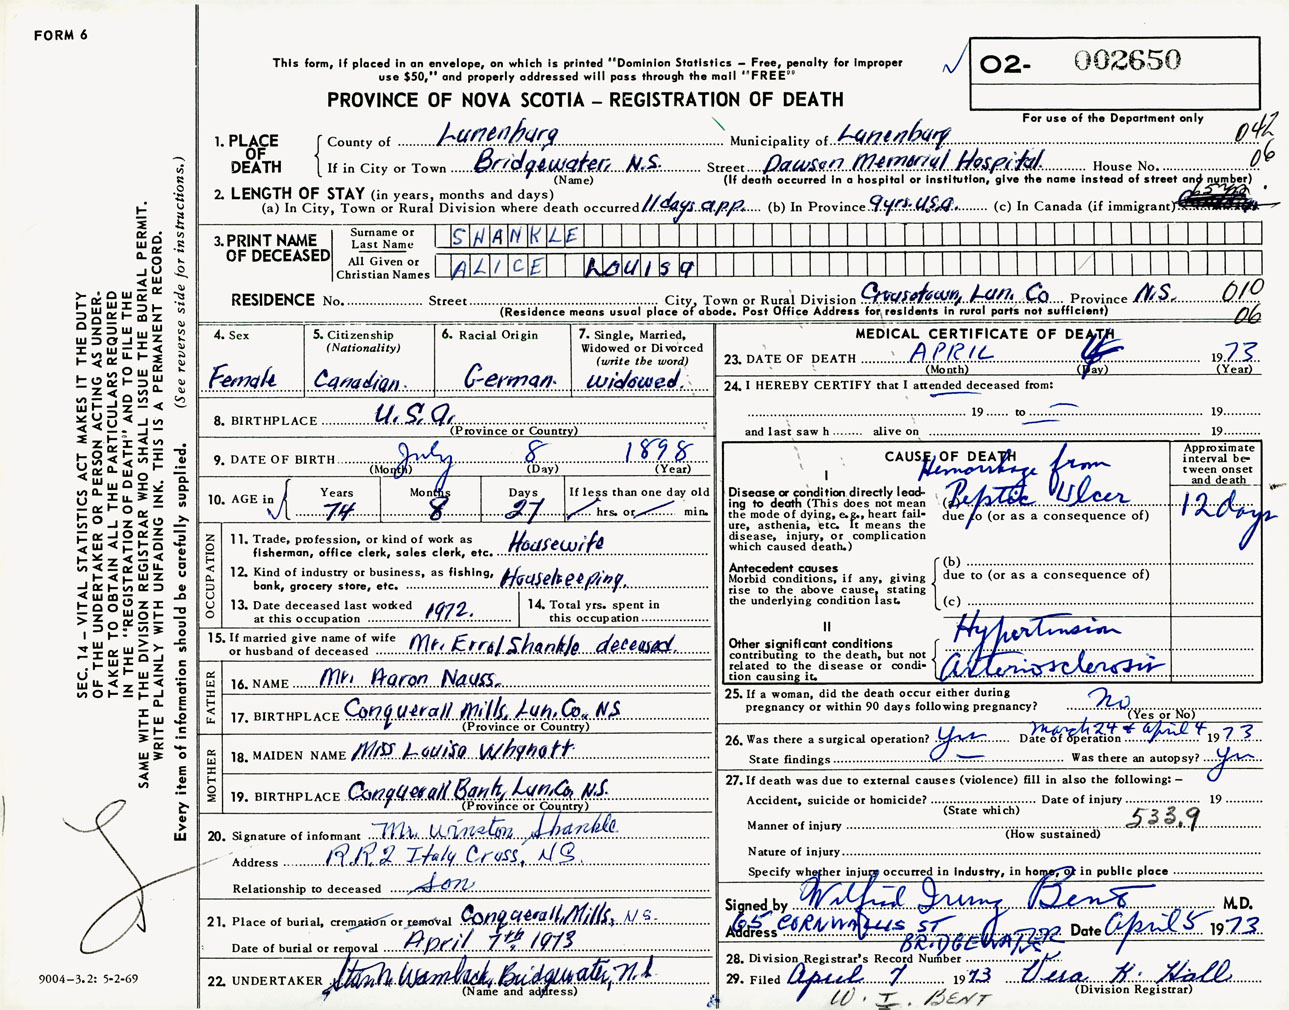 FORM 6
This form, if placed in an envelope, on which is printed "Dominion Statistics – Free, penalty for improper
use $50," and properly addressed will pass through the mail "FREE"
PROVINCE OF NOVA SCOTIA – REGISTRATION OF DEATH
02- 002650
For use of the Department only
042
06
1. PLACE OF DEATH
County of Lunenburg Municipality of Lunenburg
If in City or Town Bridgewater, N.S. Street Dawson Memorial Hospital House No.
(Name) (If death occurred in a hospital or institution, give the name instead of street and number)
2. LENGTH OF STAY (in years, months and days)
(a) In City, Town or Rural Division where death occurred 11 days app. (b) In Province 9 yrs. U.S.A. (c) In Canada (if immigrant)
3. PRINT NAME OF DECEASED
Surname or Last Name SHANKLE
All Given or Christian Names ALICE Louisa
RESIDENCE No. Street City, Town or Rural Division Crousetown, Lun. Co Province N.S. 010
(Residence means usual place of abode. Post Office Address for residents in rural parts not sufficient) 06
4. Sex
Female
5. Citizenship
(Nationality)
Canadian.
6. Racial Origin
German.
7. Single, Married,
Widowed or Divorced
(write the word)
widowed.
8. BIRTHPLACE U.S.A.
(Province or Country)
9. DATE OF BIRTH July 8 1898
(Month) (Day) (Year)
10. AGE in Years 74 Months 8 Days 27 If less than one day old
hrs. or min.
OCCUPATION
11. Trade, profession, or kind of work as
fisherman, office clerk, sales clerk, etc. Housewife
12. Kind of industry or business, as fishing,
bank, grocery store, etc. Housekeeping.
13. Date deceased last worked
at this occupation 1972.
14. Total yrs. spent in
this occupation
15. If married give name of wife
or husband of deceased Mr. Errol Shankle deceased.
FATHER
16. NAME Mr. Aaron Nauss.
17. BIRTHPLACE Conquerall Mills, Lun. Co., N.S
(Province or Country)
MOTHER
18. MAIDEN NAME Miss Louisa Whynott
19. BIRTHPLACE Conquerall Bank, Lun. Co, N.S.
(Province or Country)
20. Signature of informant Mr. Winston Shankle
Address R.R.2 Italy Cross, N.S.
Relationship to deceased son
21. Place of burial, cremation or removal Conquerall, Mills, N.S.
Date of burial or removal April 7th. 1973
22. UNDERTAKER Wamback, Bridgewater, N.S.
(Name and address)
MEDICAL CERTIFICATE OF DEATH
23. DATE OF DEATH APRIL 4 1973
(Month) (Day) (Year)
24. I HEREBY CERTIFY that I attended deceased from:
19 to 19
and last saw h alive on 19
CAUSE OF DEATH
Approximate
interval be-
tween onset
and death
I
Disease or condition directly lead-
ing to death (This does not mean
the mode of dying, e.g., heart fail-
ure, asthenia, etc. It means the
disease, injury, or complication
which caused death.)
Hemorrhage from
(a) Peptic Ulcer 12 days
due to (or as a consequence of)
Antecedent causes
Morbid conditions, if any, giving
rise to the above cause, stating
the underlying condition last.
(b)
due to (or as a consequence of)
(c)
II
Other significant conditions
contributing to the death, but not
related to the disease or condi-
tion causing it.
Hypertension
Arteriosclerosis
25. If a woman, did the death occur either during
pregnancy or within 90 days following pregnancy? No
(Yes or No)
26. Was there a surgical operation? Yes Date of operation March 24 & April 4 1973
State findings Was there an autopsy? Yes
27. If death was due to external causes (violence) fill in also the following: –
Accident, suicide or homicide? Date of injury 19
(State which)
Manner of injury 533.9
(How sustained)
Nature of injury
Specify whether injury occurred in industry, in home, or in public place
Signed by Wilfrid Irving Bent M.D.
Address 65 CORNWALLIS ST
BRIDGEWATER Date April 5 1973
28. Division Registrar's Record Number
29. Filed April 7 1973 Vera K. Hall
(Division Registrar)
W. I. BENT
SEC. 14 – VITAL STATISTICS ACT MAKES IT THE DUTY
OF THE UNDERTAKER OR PERSON ACTING AS UNDER-
TAKER TO OBTAIN ALL THE PARTICULARS REQUIRED
IN THE "REGISTRATION OF DEATH" AND TO FILE THE
SAME WITH THE DIVISION REGISTRAR WHO SHALL ISSUE THE BURIAL PERMIT.
WRITE PLAINLY WITH UNFADING INK. THIS IS A PERMANENT RECORD.
Every item of information should be carefully supplied. (See reverse side for instructions.)
9004–3.2: 5-2-69